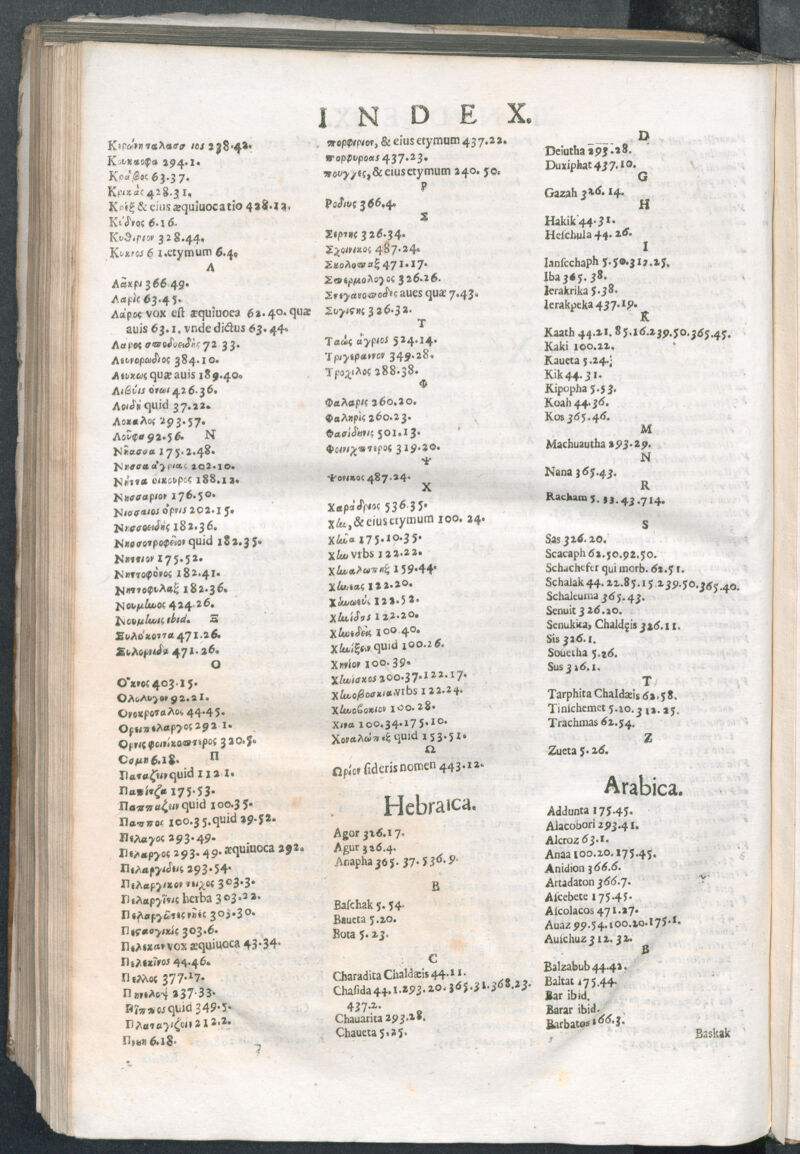 INDEX.
Κιρύνη ταλασσ ιος 238.42.
Κουκουφα 294.1.
Κράβος 63.37.
Κρικάς 428.31.
Κρὲξ & eius æquiuocatio 428.12.
Κύδνος 6.16.
Κυθιριον 328.44.
Κυκνος 6 1. etymum 6.40
Λ
Λᾶκρι 366.49.
Λαρὶς 63.45.
Λάρος vox est æquiuoca 62.40. quæ
auis 63.1. vnde dictus 63.44.
Λαρος σποδοειδὴς 72.33.
Λευνορωδιος 384.10.
Λευκως quæ auis 189.40.
Λιβυὶς ὄνις 426.36.
Λοιδὴ quid 37.22.
Λοκαλος 293.57.
Λοῦφα 92.56.
Ν
Νῆασσα 175.2.48.
Νησσα ἀγριας 202.10.
Νῆττα οἰκουρος 188.12.
Νησσαριον 176.50.
Νιοσαιος ὄρνις 202.15.
Νησσοειδὴς 182.36.
Νησσοτροφεῖον quid 182.35.
Νηττιον 175.52.
Νηττοφόνος 182.41.
Νηττοφυλαξ 182.36.
Νουμίωος 424.26.
Νουμίωις ibid.
Ξ
Ξυλόκοττα 471.26.
Ξυλορνιδα 471.26.
Ο
Ὄκνος 403.15.
Ολολυγον 92.21.
Ονοκροταλος 44.45.
Ορειπελαργος 292.1.
Ορνις φοινικοπτερος 320.5.
Οσμη 6.18.
Π
Παταζειν quid 112 1.
Παπίτζα 175.53.
Παππαζειν quid 100.35.
Παππος 100.35. quid 29.52.
Πελαγος 293.49.
Πελαργος 293.49. æquiuoca 292.
Πελαργιδεις 293.54.
Πελαργικον τειχος 303.3.
Πελαργῖτις herba 303.22.
Πελαργῶτες νῆες 303.30.
Πελασγικὶς 303.6.
Πελεκαν vox æquiuoca 43.34.
Πελεκῖνος 44.46.
Πελλος 377.17.
Πηνελοψ 237.33.
Πίππος quid 349.5.
Πλαταγιζειν 212.2.
Πνοη 6.18.
πορφυριον, & eius etymum 437.22.
πορφυροας 437.23.
πουγγὲς, & eius etymum 240. 50.
Ρ
Ροδιος 366.4.
Σ
Σερτης 326.34.
Σχοινικος 487.24.
Σκολοπαξ 471.17.
Σπερμολογος 326.26.
Στεγανοποδες aues quæ 7.43.
Συγιτης 326.32.
Τ
Ταὼς ἄγριος 524.14.
Τριγερανον 349.28.
Τροχιλος 288.38.
Φ
Φαλαρις 260.20.
Φαληρὶς 260.23.
Φασίδηνις 501.13.
Φοινιχοπτερος 319.20.
Ψ
Ψονικος 487.24.
Χ
Χαράδριος 536.35.
Χίω, & eius etymum 100. 24.
Χίωα 175.10.35.
Χίω vrbs 122.22.
Χίωαλωπηξ 159.44.
Χίωεας 122.20.
Χάωεὺς 122.52.
Χίωίδες 122.20.
Χίωεδὲις 100.40.
Χίωίξειν quid 100.26.
Χηνίον 100.39.
Χίωίσκος 200.37.122.17.
Χίωοβοσκια. vrbs 122.24.
Χίωοβοσκιον 100.28.
Χινα 100.34.175.10.
Χοναλώπεξ quid 153.51.
Ω
Ωρίον sideris nomen 443.12.
Hebraica.
Agor 326.17.
Agur 326.4.
Anapha 365. 37. 536.9.
B
Baſchak 5. 54.
Baueta 5.20.
Bota 5. 23.
C
Charadita Chaldæis 44.11.
Chaſida 44.1.293.20.365.31.368.23.
437.2.
Chauarita 293.28.
Chaueta 5.25.
D
Deiutha 293.28.
Duxiphat 437.10.
G
Gazah 326.14.
H
Hakik 44.31.
Heſchula 44.26.
I
Ianſechaph 5.50.312.25.
Iba 365. 38.
Ierakrika 5.38.
Ierakpeka 437.19.
K
Kaath 44.21. 85.16.239.50.365.45.
Kaki 100.22.
Kaueta 5.24.
Kik 44.31.
Kipopha 5.53.
Koah 44.36.
Kos 365.46.
M
Machuautha 293.29.
N
Nana 365.43.
R
Racham 5. 53. 43.714.
S
Sas 326.20.
Scacaph 62.50.92.50.
Schachefer qui morb. 62.51.
Schalak 44.22.85.15.239.50.365.40.
Schaleuma 365.43.
Senuit 326.20.
Senukka, Chaldęis 326.11.
Sis 326.1.
Souetha 5.26.
Sus 326.1.
T
Tarphita Chaldæis 62.58.
Tiniſchemet 5.20.312.25.
Trachmas 62.54.
Z
Zueta 5.26.
Arabica.
Addunta 175.45.
Alacobori 293.41.
Alcroz 63.1.
Anaa 100.20.175.45.
Anidion 366.6.
Artadaton 366.7.
Aſcebete 175.45.
Aſcolacos 471.27.
Auaz 99.54.100.20.175.1.
Auiſchuz 312.32.
B
Balzabub 44.42.
Baltat 175.44.
Bar ibid.
Barar ibid.
Barbatos 166.3.
Baskak